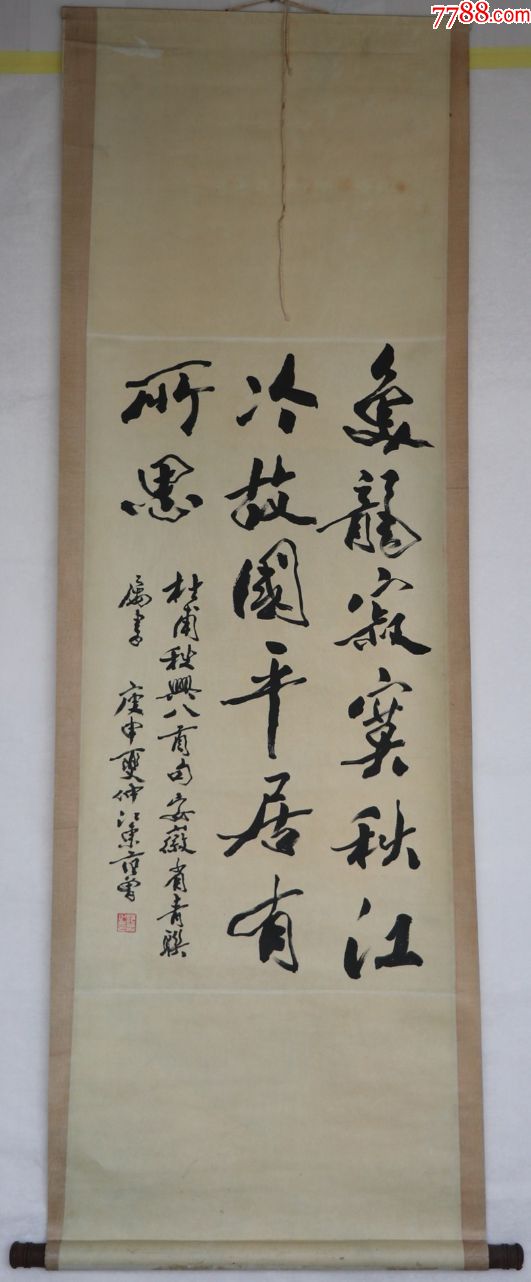 7788.com
鱼龙寂寞秋江
冷故國平居有
所思
杜甫秋興八首句安徽省青聯
属書 庚申夏仲江東范曾